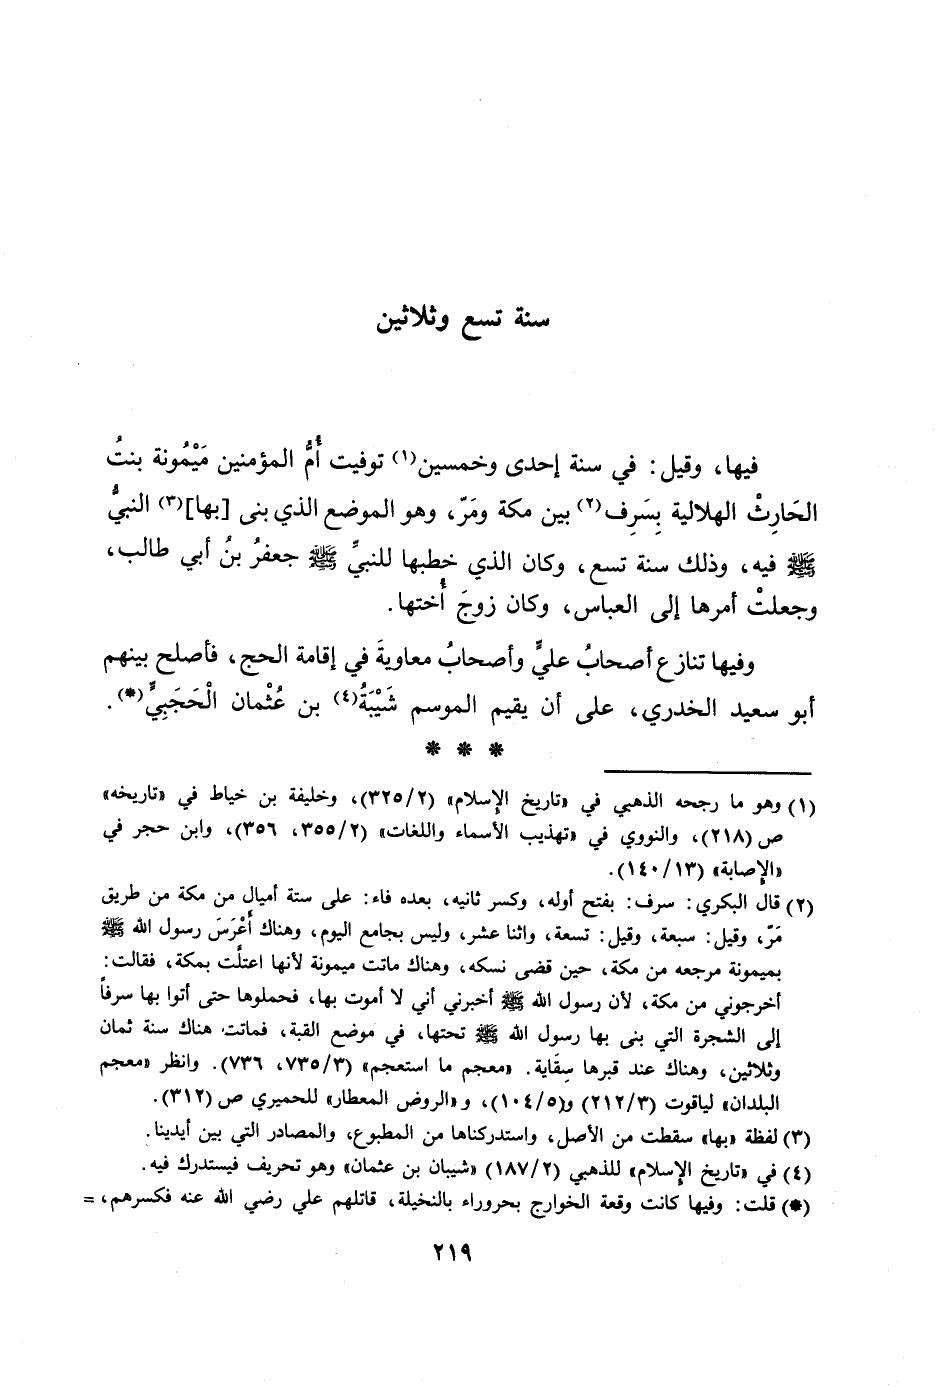 سنة تسع وثلاثين
فيها، وقيل: في سنة إحدى وخمسين(١) توفيت أُمُّ المؤمنين مَيْمُونة بنتُ
الحَارِثْ الهلالية بِسَرِف(٢) بين مكة ومَرّ، وهو الموضع الذي بنى [بها](٣) النبيُّ
ﷺ فيه، وذلك سنة تسع، وكان الذي خطبها للنبيِّ ﷺ جعفرُ بنُ أبي طالب،
وجعلتْ أمرها إلى العباس، وكان زوجَ أُختها.
وفيها تنازع أصحابُ عليٍّ وأصحابُ معاويةَ في إقامة الحج، فأصلح بينهم
أبو سعيد الخدري، على أن يقيم الموسم شَيْبَةُ(٤) بن عُثْمان الْحَجَبِيِّ(*).
* * *
(١) وهو ما رجحه الذهبي في «تاريخ الإسلام» (٣٢٥/٢)، وخليفة بن خياط في «تاريخه»
ص (٢١٨)، والنووي في «تهذيب الأسماء واللغات» (٣٥٥/٢، ٣٥٦)، وابن حجر في
«الإصابة» (١٤٠/١٣).
(٢) قال البكري: سرف: بفتح أوله، وكسر ثانيه، بعده فاء: على ستة أميال من مكة من طريق
مَرّ، وقيل: سبعة، وقيل: تسعة، واثنا عشر، وليس بجامع اليوم، وهناك أَعْرَسَ رسول الله ﷺ
بميمونة مرجعه من مكة، حين قضى نسكه، وهناك ماتت ميمونة لأنها اعتلَّت بمكة، فقالت:
أخرجوني من مكة، لأن رسول الله ﷺ أخبرني أني لا أموت بها، فحملوها حتى أتوا بها سرفاً
إلى الشجرة التي بنى بها رسول الله ﷺ تحتها، في موضع القبة، فماتت هناك سنة ثمان
وثلاثين، وهناك عند قبرها سِقَاية. «معجم ما استعجم» (٧٣٥/٣، ٧٣٦). وانظر «معجم
البلدان» لياقوت (٢١٢/٣) و(١٠٤/٥)، و«الروض المعطار» للحميري ص (٣١٢).
(٣) لفظة «بها» سقطت من الأصل، واستدركناها من المطبوع، والمصادر التي بين أيدينا.
(٤) في «تاريخ الإسلام» للذهبي (١٨٧/٢) «شيبان بن عثمان» وهو تحريف فيستدرك فيه.
(*) قلت: وفيها كانت وقعة الخوارج بحروراء بالنخيلة، قاتلهم علي رضي الله عنه فكسرهم، =
٢١٩